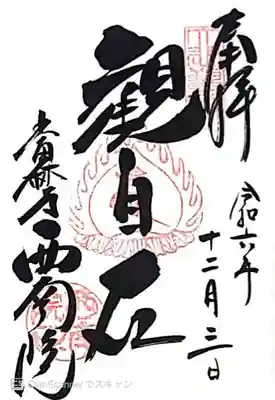 奉拝
令和六年
十二月三日
観自在
當麻寺 西南院
CS CamScanner でスキャン